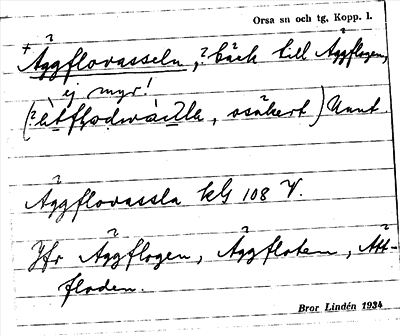 Orsa sn och tg, Kopp. l.
+ Äggflovasseln, ? bäck till Äggflogen,
ej myr!
osäkert) Uunt.
Äggflovassla kG 108 V.
Jfr Äggflogen, Äggfloten, Ätt-
floden.
Bror Lindén 1934